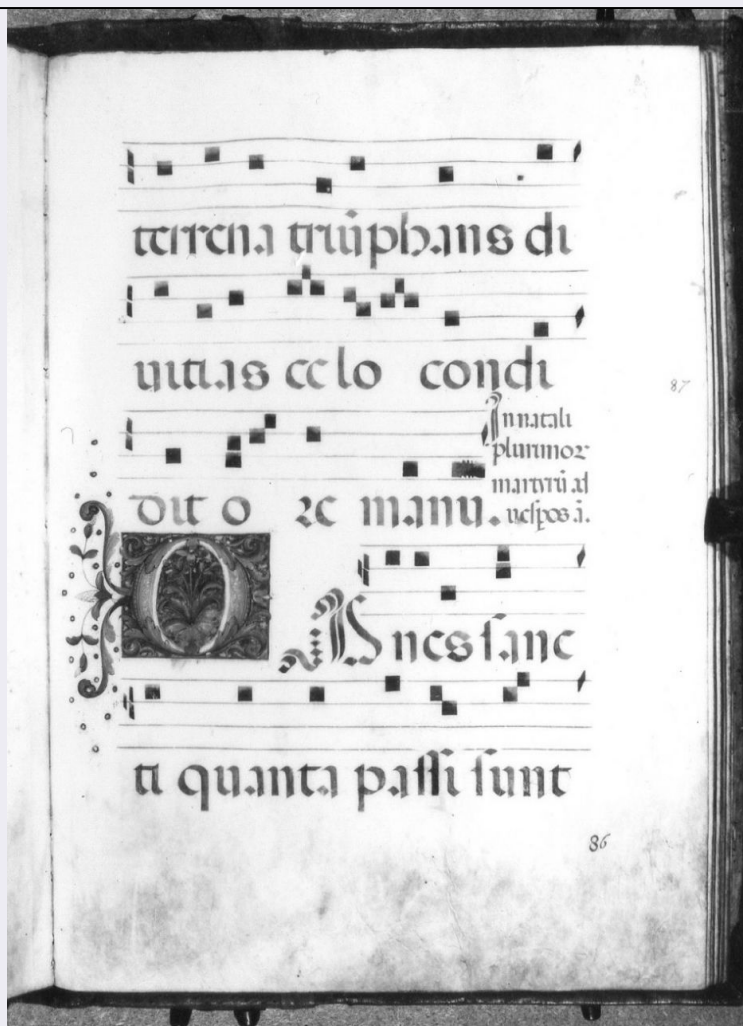 terrena triūphans di
uitias celo condi
87
In natali
plurimoꝝ
martyrū ad
uesꝑos ā.
dit o re manu.
OMnes sanc
ti quanta passi sunt
86